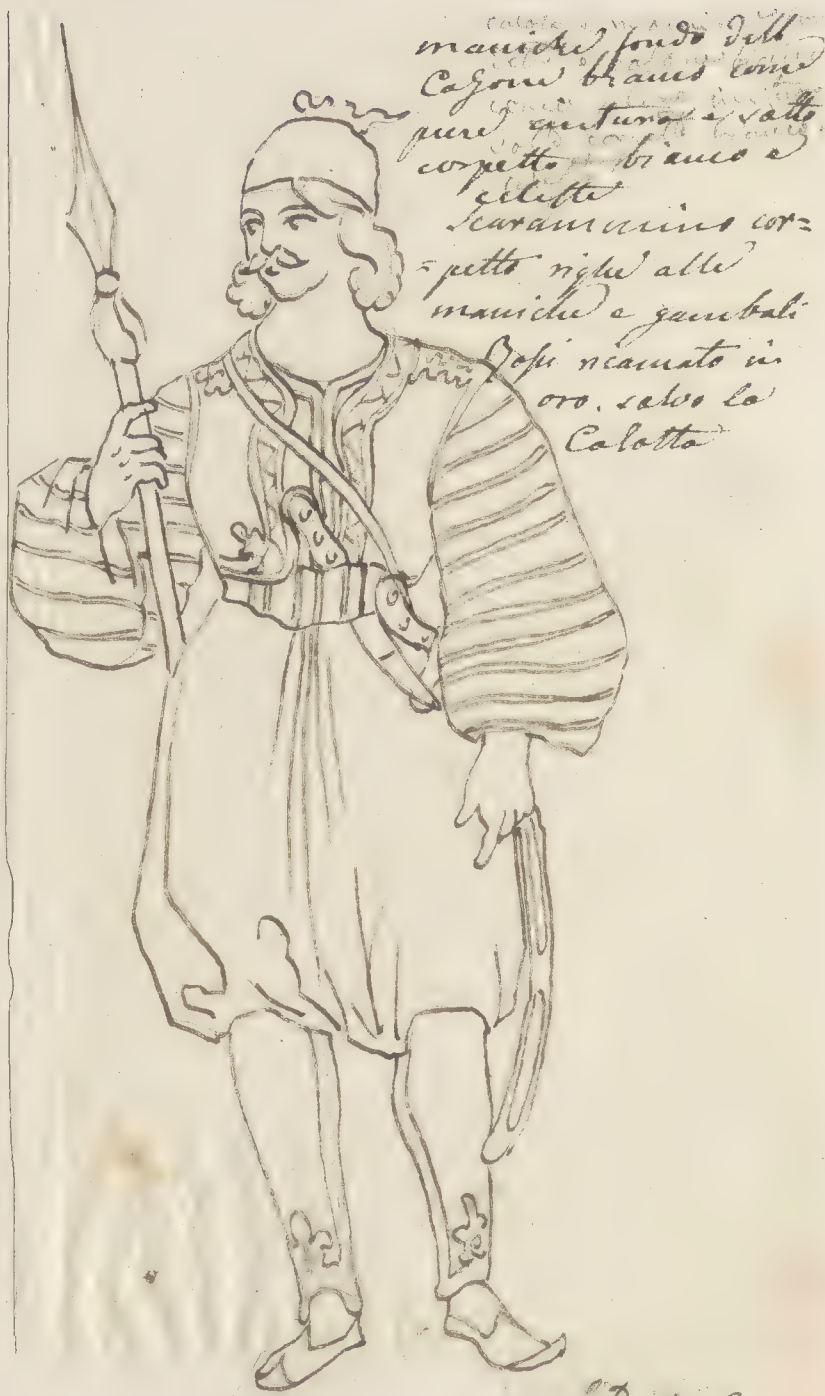 maniche fondo dell
Calzone bianco come
pure cintura e sotto
corpetto bianco e
celeste
cor=
=petto righe alle
maniche e gambali
ricamato in
oro. salvo la
Calotta